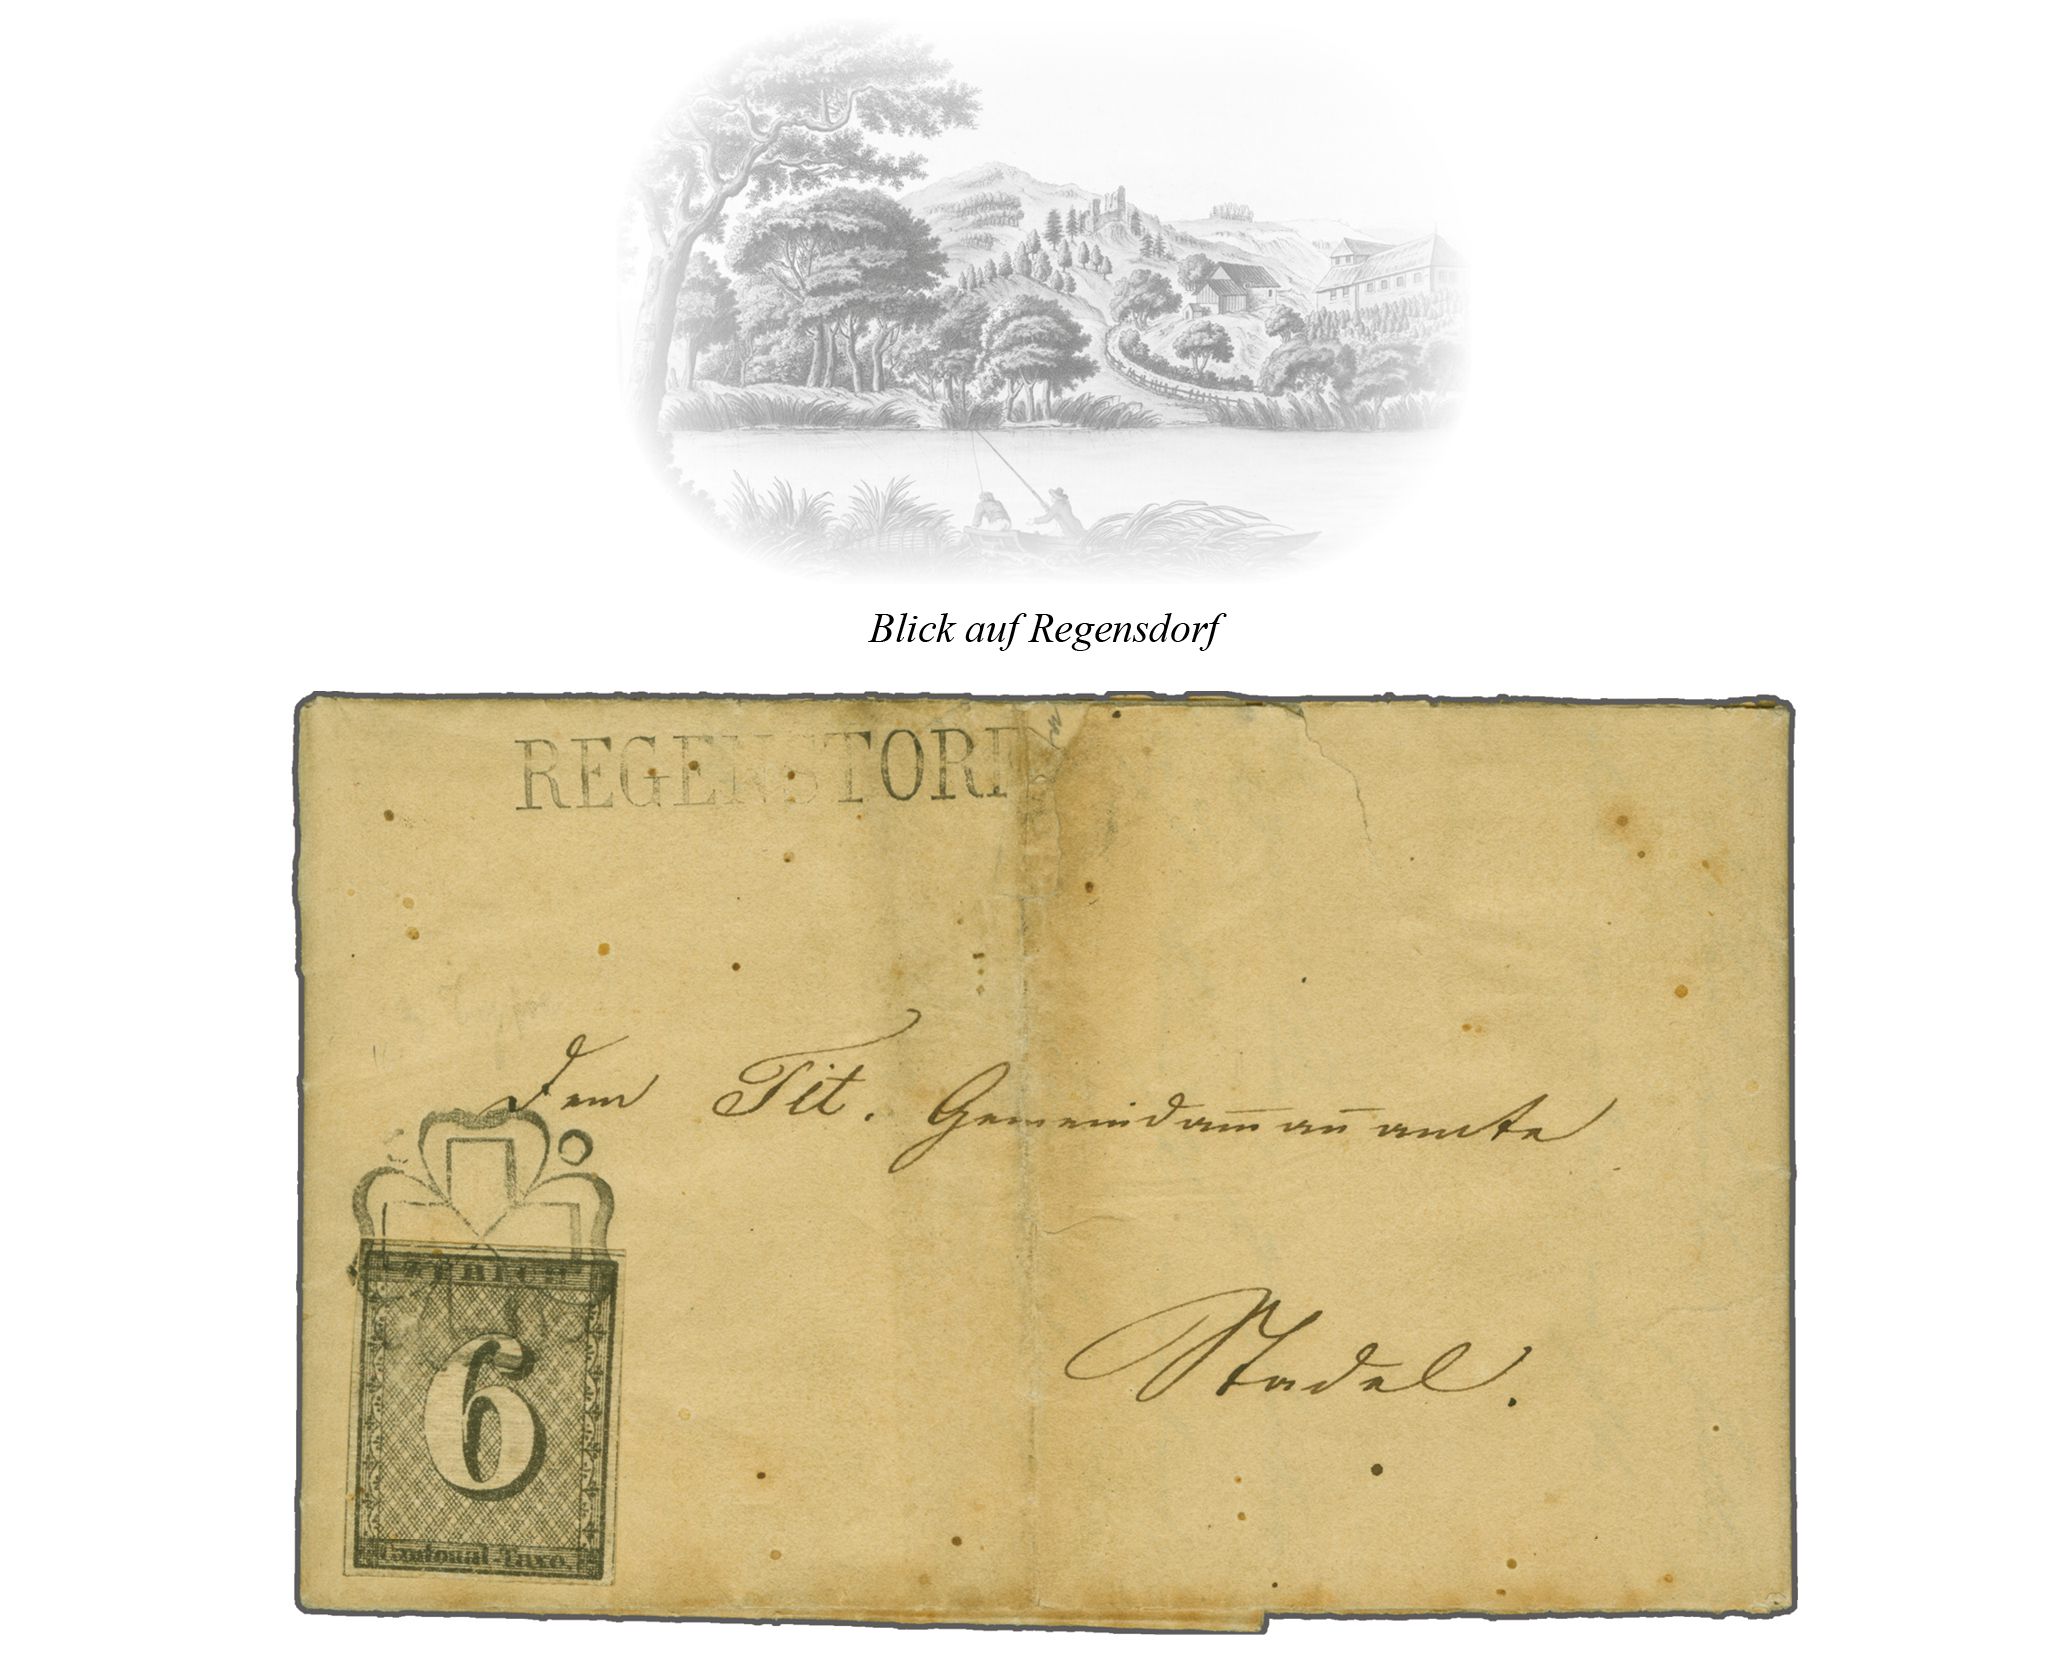 Blick auf Regensdorf
REGENSTORF
Dem Tit. Gemeindam̅an̅amte
Stadel.
ZÜRICH
6
Cantonal-Taxe.